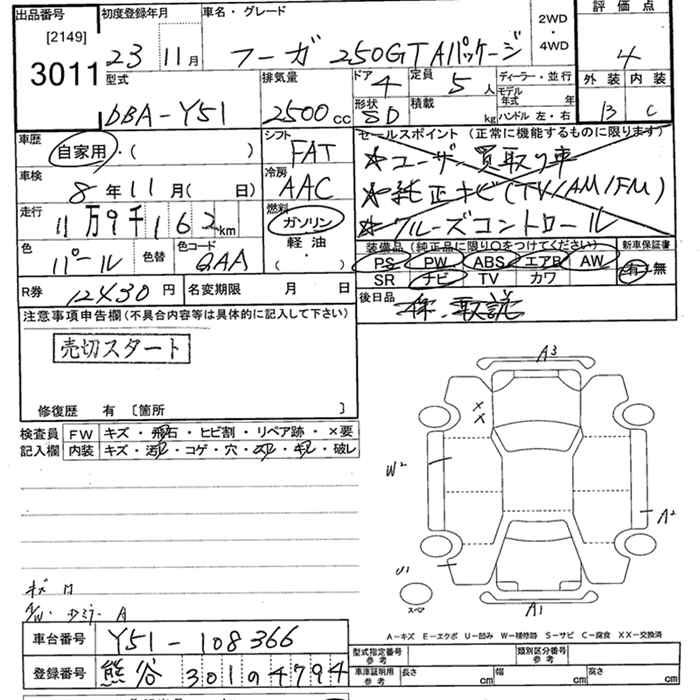 出品番号 初度登録年月 車名・グレード 2WD・4WD 評価点
[2149]
3011 23 11月 フーガ 250GT Aパッケージ 4
型式 排気量 ドア 4 定員 5人 ディーラー・並行 外装 内装
DBA-Y51 2500cc 形状 SD 積載 kg モデル年式 年 B C
ハンドル 左・右
車歴 自家用・( ) シフト FAT セールスポイント (正常に機能するものに限ります)
★ユーザー買取り車
車検 8年11月( 日) 冷房 AAC ★純正ナビ(TV/AM/FM)
走行 11万9千162km 燃料 ガソリン ★クルーズコントロール
軽油・( )
色 パール 色替 色コード QAA 装備品 (純正品に限り○をつけてください) 新車保証書
PS PW ABS エアB AW 有・無
SR ナビ TV カワ
R券 12430円 名変期限 月 日 後日品 保、取説
注意事項申告欄 (不具合内容等は具体的に記入して下さい)
売切スタート
修復歴 有 [箇所 ]
検査員記入欄 FW キズ・飛石・ヒビ割・リペア跡・×要
内装 キズ・汚れ・コゲ・穴・・・破レ
A3
W2
A2
U1
A1
スペア
A-キズ E-エクボ U-凹み W-補修跡 S-サビ C-腐食 XX-交換済
車台番号 Y51-108366
登録番号 熊谷 301 4794
型式指定番号 参考 類別区分番号 参考
車庫証明用 参考 長さ cm 幅 cm 高さ cm